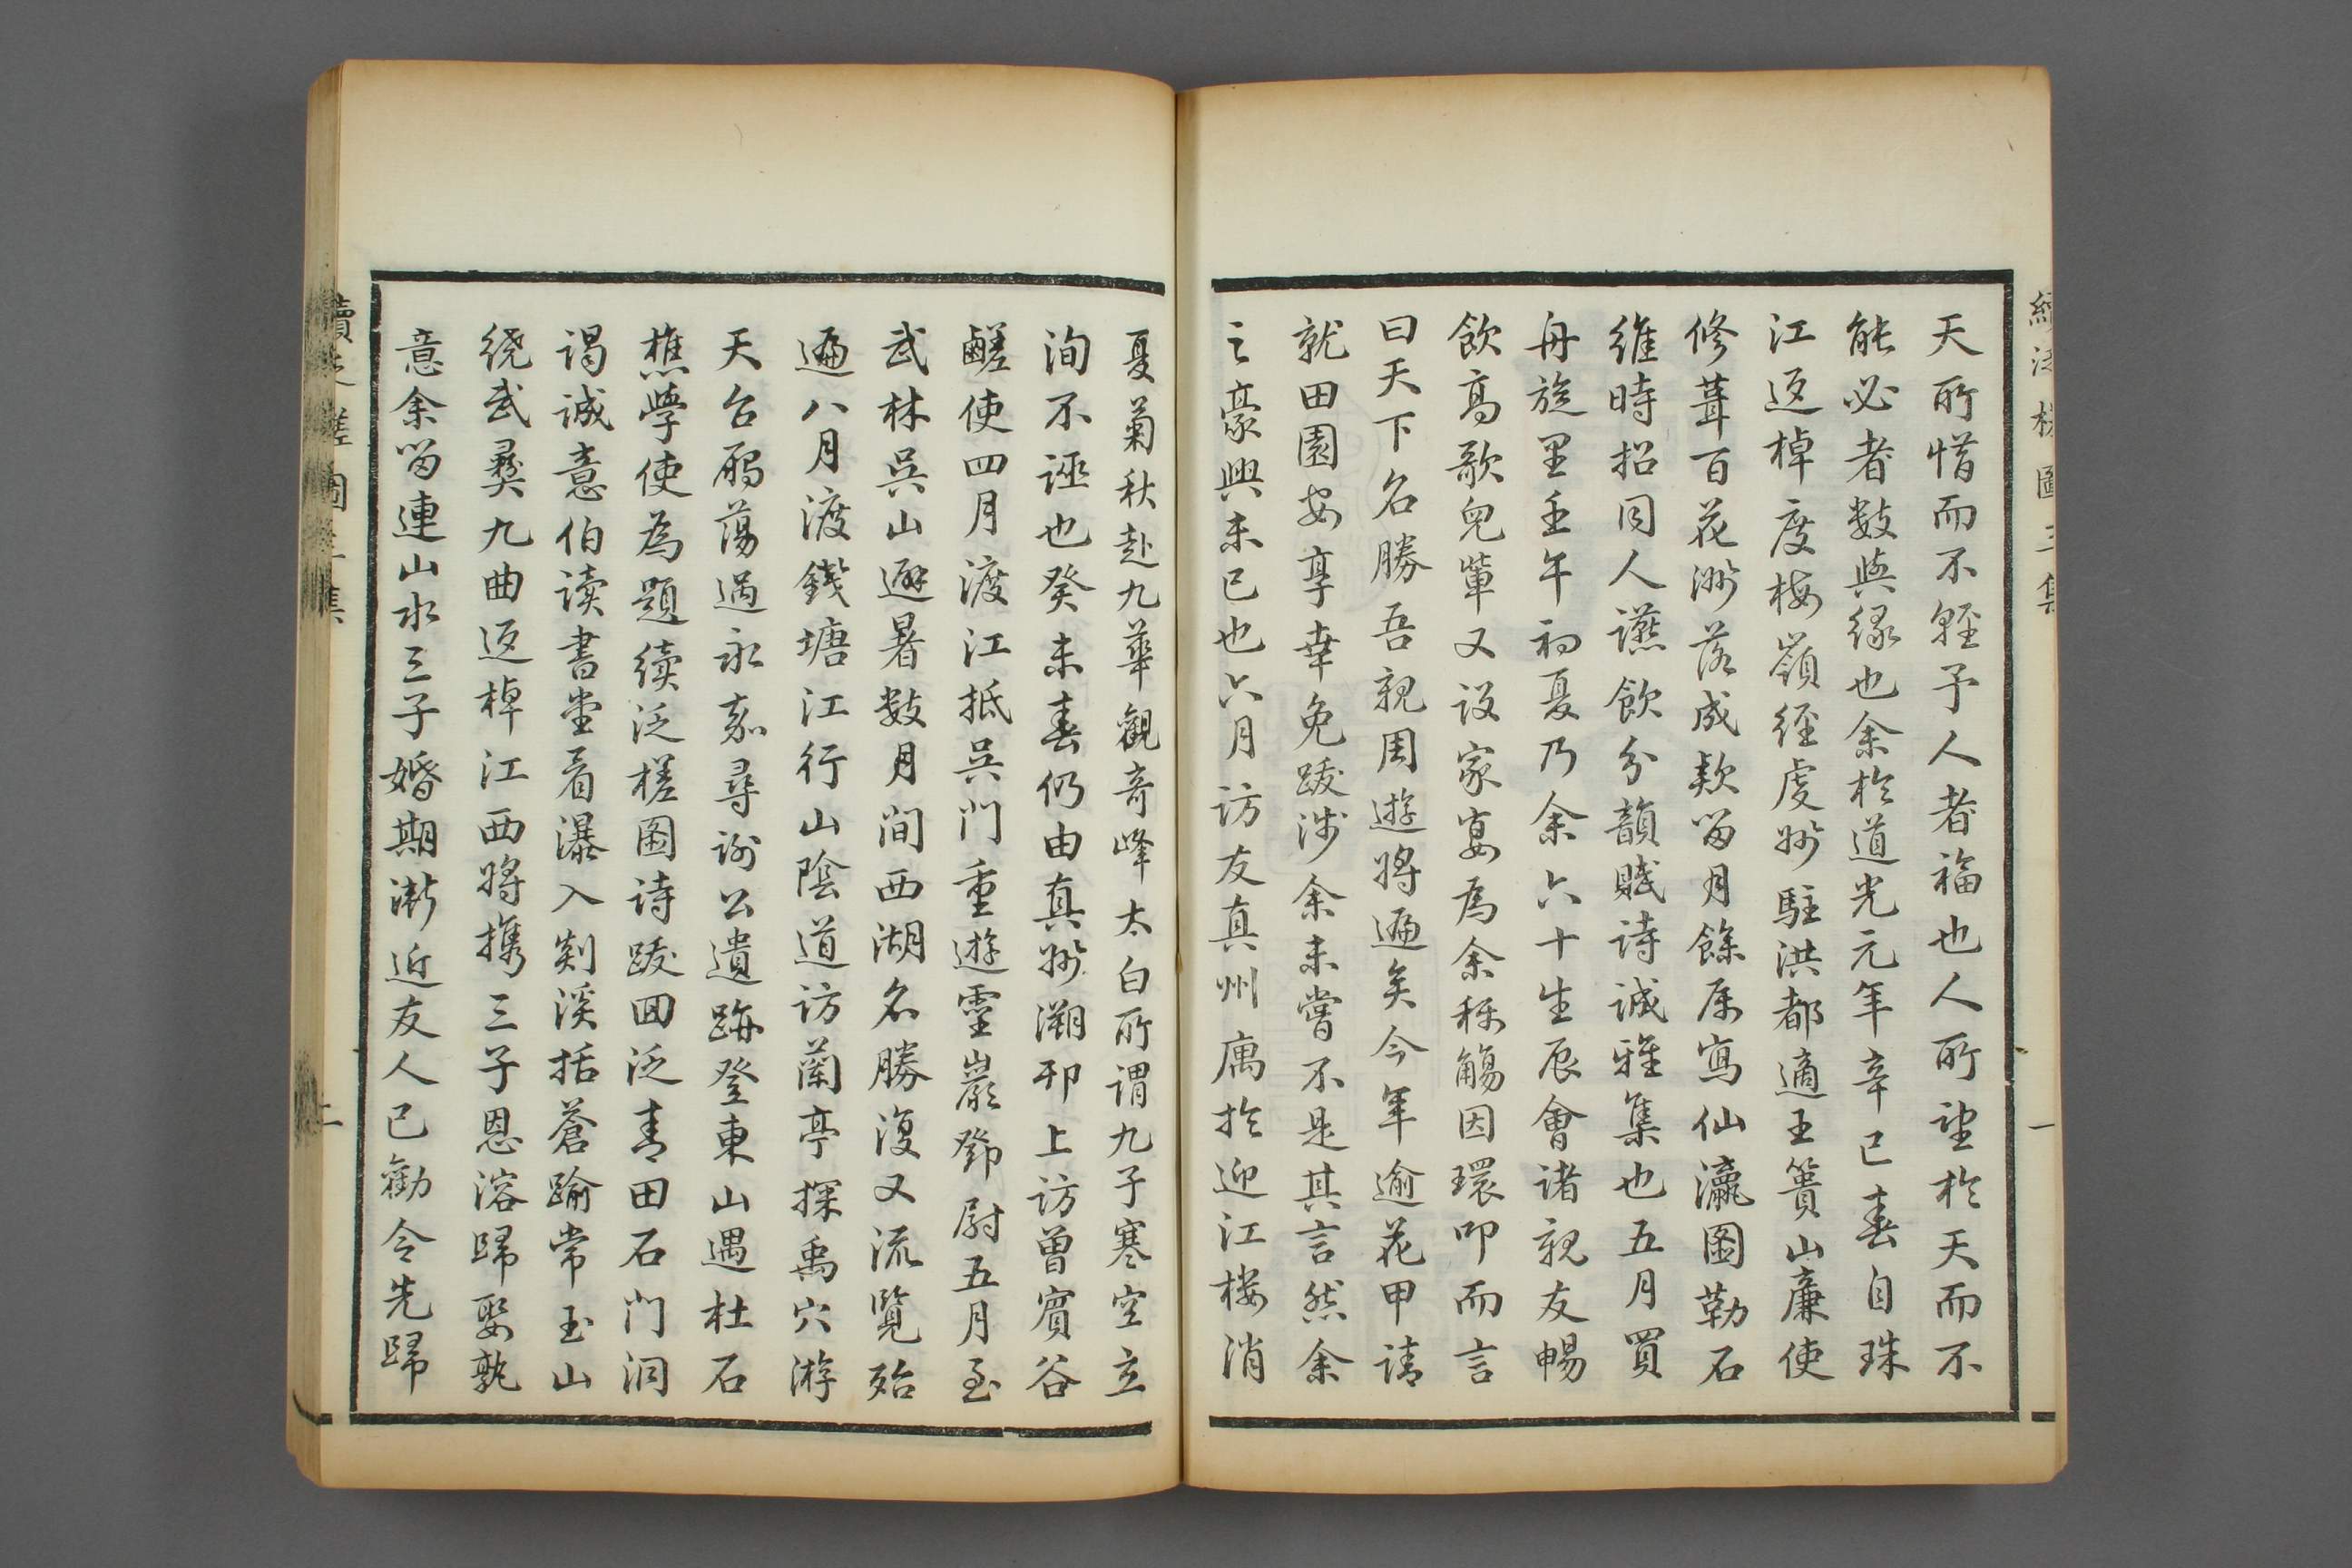 續泛槎圖三集
一
天所惜而不輕予人者福也人所望於天而不
能必者數與緣也余於道光元年辛巳春自珠
江返棹度梅嶺經虔州駐洪都適王簣山廉使
修葺百花洲落成款留月餘屬寫仙瀛圖勒石
維時招同人讌飲分韻賦詩誠雅集也五月買
舟旋里壬午初夏乃余六十生辰會諸親友暢
飲高歌兒輩又設家宴為余稱觴因環叩而言
曰天下名勝吾親周遊將遍矣今年逾花甲請
就田園安享幸免跋涉余未嘗不是其言然余
之豪興未已也六月訪友真州寓於迎江樓消
夏菊秋赴九華觀奇峰太白所謂九子寒空立
洵不誣也癸未春仍由真州溯邗上訪曾賓谷
鹺使四月渡江抵吳門重遊靈巖鄧尉五月至
武林吳山避暑數月間西湖名勝復又流覽殆
遍八月渡錢塘江行山陰道訪蘭亭探禹穴游
天台雁蕩過永嘉尋謝公遺跡登東山遇杜石
樵學使為題續泛槎圖詩跋回泛青田石門洞
謁誠意伯讀書堂看瀑入剡溪括蒼踰常玉山
繞武彝九曲返棹江西將攜三子恩溶歸娶孰
意余留連山水三子婚期漸近友人已勸令先歸
續泛槎圖三集
二